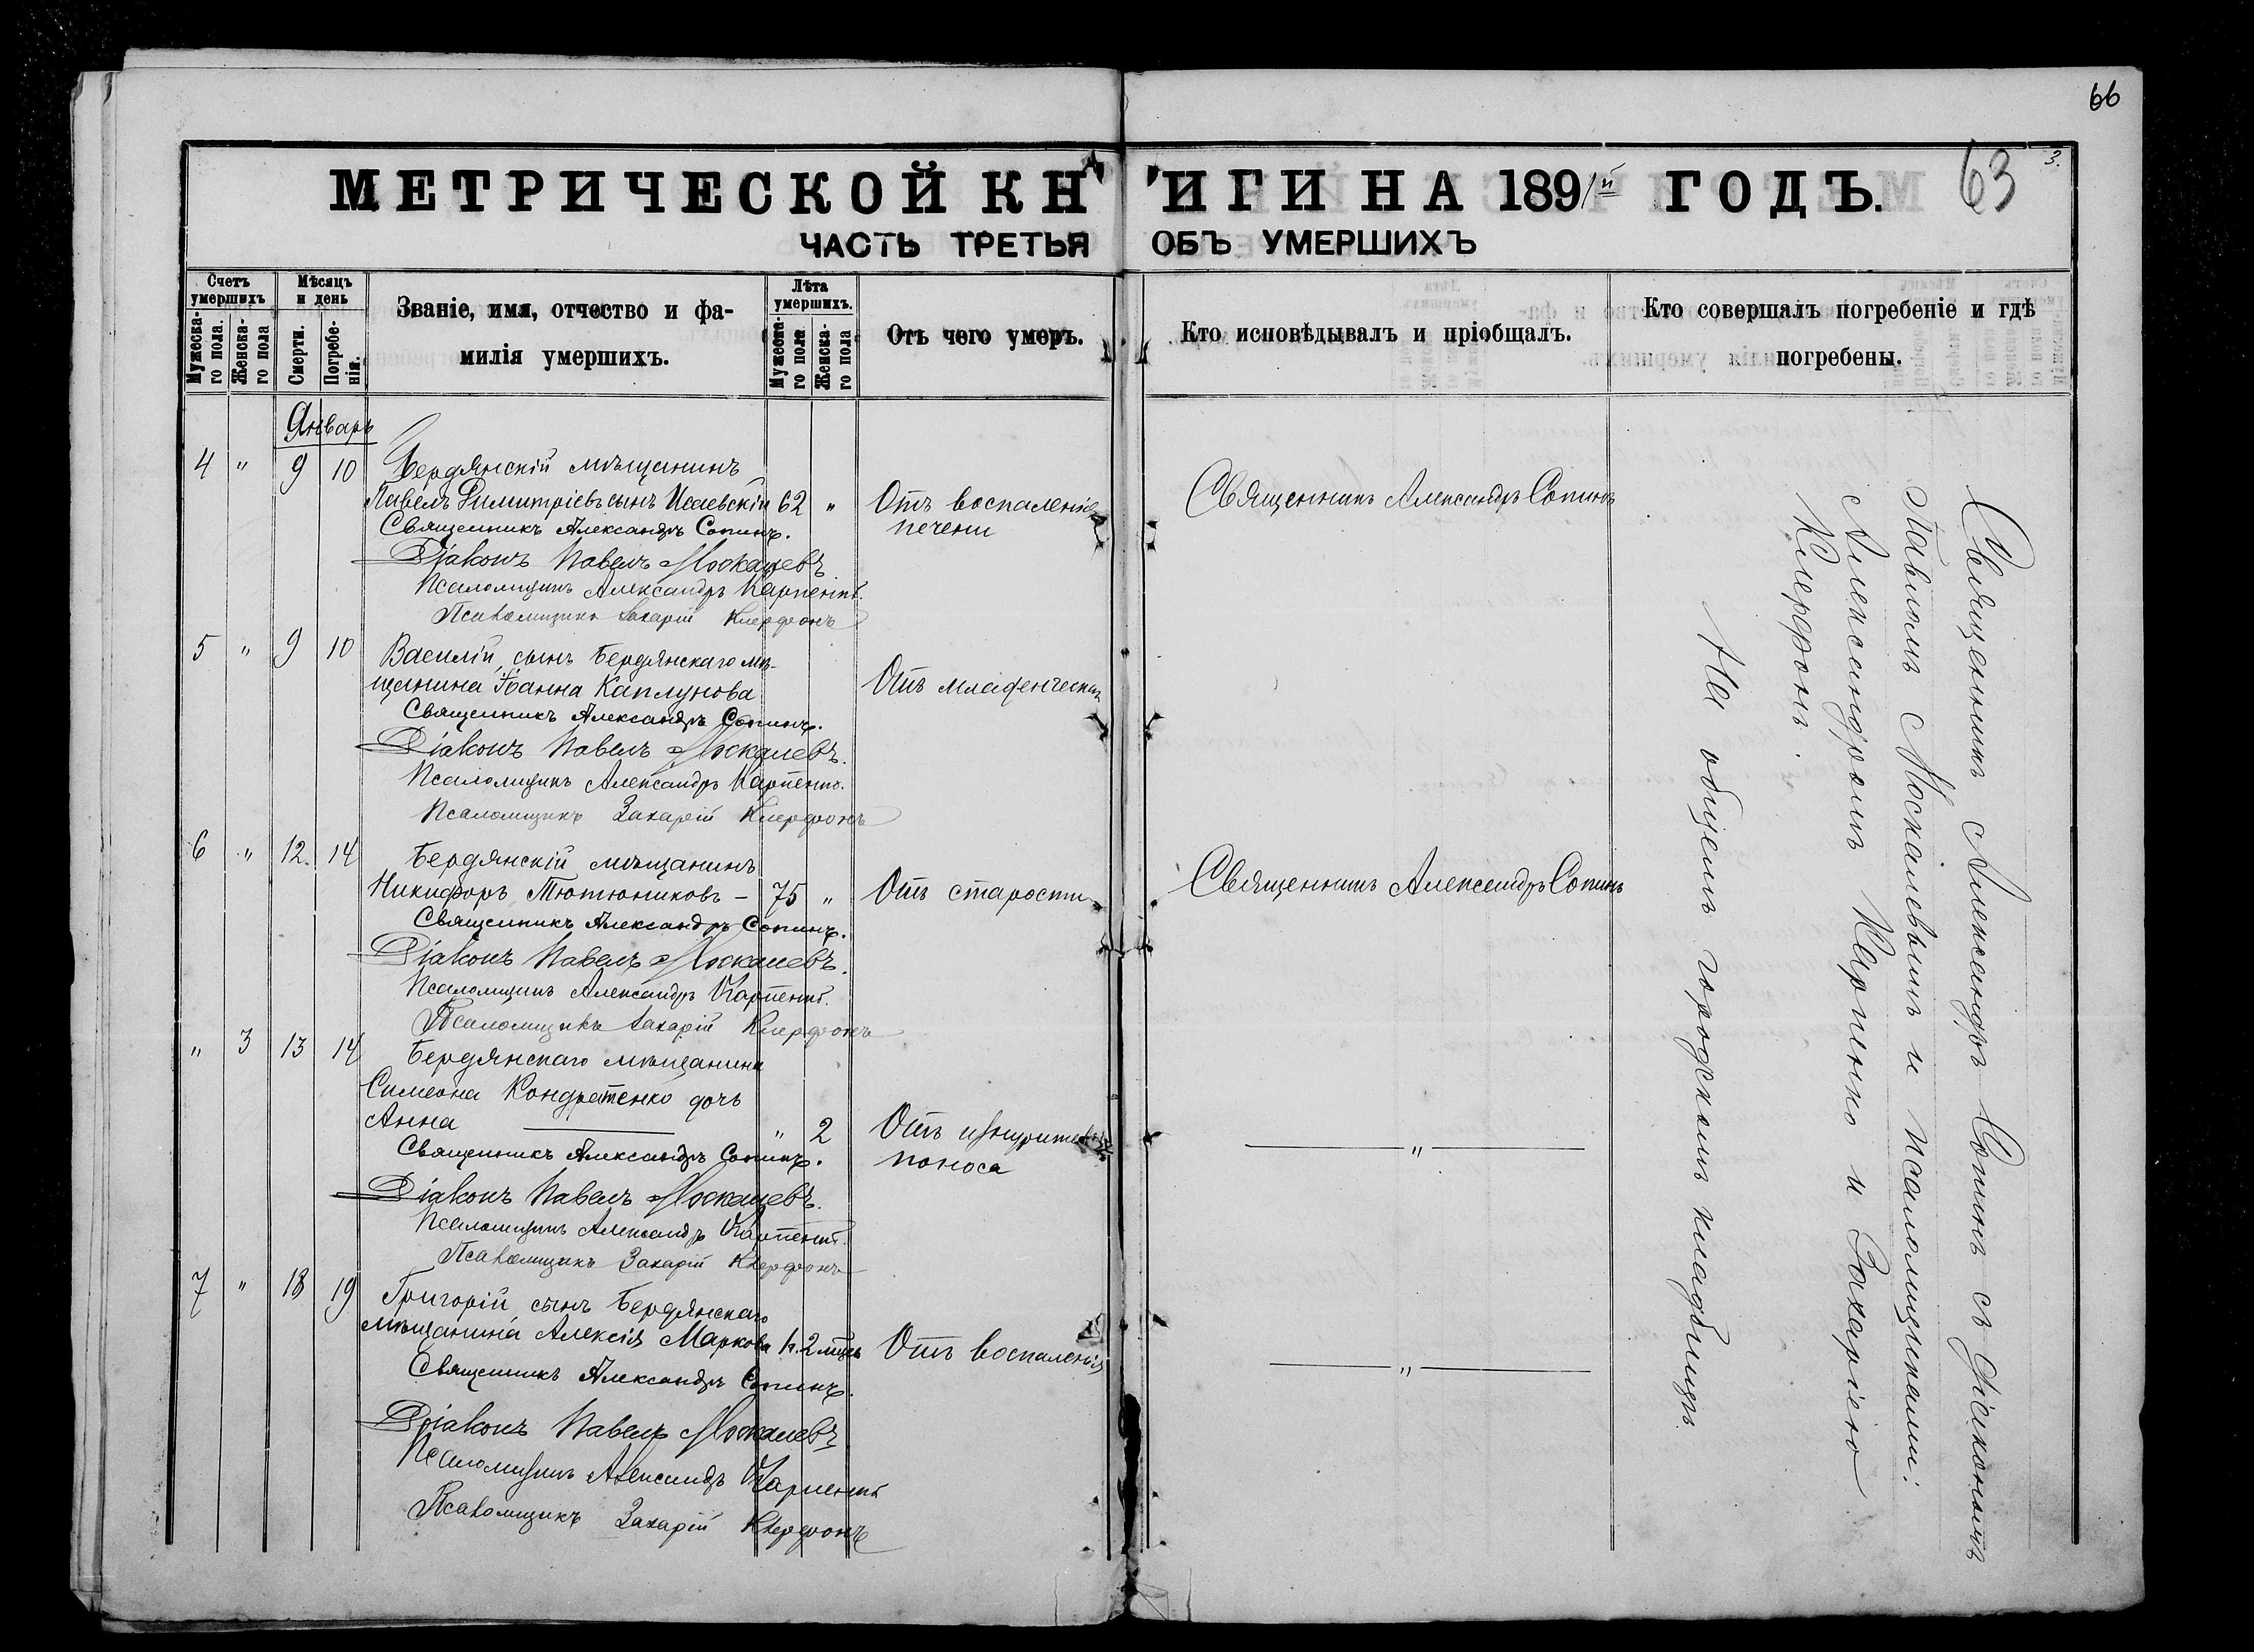 66
63
3.
МЕТРИЧЕСКОЙ КНИГИ НА 1891й ГОДЪ.
ЧАСТЬ ТРЕТЬЯ ОБЪ УМЕРШИХЪ
Счетъ умершихъ
Мужеска-го пола.
Женска-го пола
Мѣсяцъ и день
Смерти.
Погребе-нія.
Званіе, имя, отчество и фа-
милія умершихъ.
Лѣта умершихъ.
Мужеска-го пола
Женска-го пола
Отъ чего умеръ.
Кто исповѣдывалъ и пріобщалъ.
Кто совершалъ погребеніе и гдѣ
погребены.
Январь
4 " 9 10 Бердянскій мѣщанинъ
Павелъ Димитріевъ сынъ Исаевскій 62 " Отъ воспаленія Священникъ Александръ Сопинъ
печени
Священникъ Александръ Сопинъ.
Діаконъ Павелъ Москалевъ
Псаломщикъ Александръ Карпенко.
Псаломщикъ Захарій Клерфонъ
5 " 9 10 Василій, сынъ Бердянскаго мѣ-
щанина Іоанна Каплунова Отъ младенческой
Священникъ Александръ Сопинъ.
Діаконъ Павелъ Москалевъ.
Псаломщикъ Александръ Карпенко.
Псаломщикъ Захарій Клерфонъ
6 " 12. 14 Бердянскій мѣщанинъ
Никифоръ Тютюниковъ – 75 " Отъ старости Священникъ Александръ Сопинъ
Священникъ Александръ Сопинъ.
Діаконъ Павелъ Москалевъ.
Псаломщикъ Александръ Карпенко.
Псаломщикъ Захарій Клерфонъ
" 3 13 14 Бердянскаго мѣщанина
Симеона Кондратенко дочь
Анна — " 2 Отъ изнурительн. — " —
поноса
Священникъ Александръ Сопинъ.
Діаконъ Павелъ Москалевъ.
Псаломщикъ Александръ Карпенко.
Псаломщикъ Захарій Клерфонъ
7 " 18 19 Григорій, сынъ Бердянскаго
мѣщанина Алексія Маркова 2 мѣс. Отъ воспаленія — " —
Священникъ Александръ Сопинъ.
Діаконъ Павелъ Москалевъ
Псаломщикъ Александръ Карпенко
Псаломщикъ Захарій Клерфонъ
Священникъ Александръ Сопинъ съ діакономъ
Павломъ Москалевымъ и псаломщиками:
Александромъ Карпенко и Захаріею
Клерфонъ.
На общемъ городскомъ кладбищѣ.